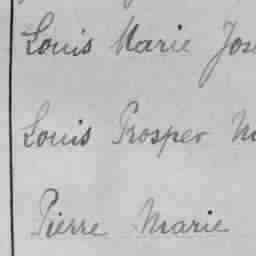 Louis Marie Jos
Louis Prosper M
Pierre Marie